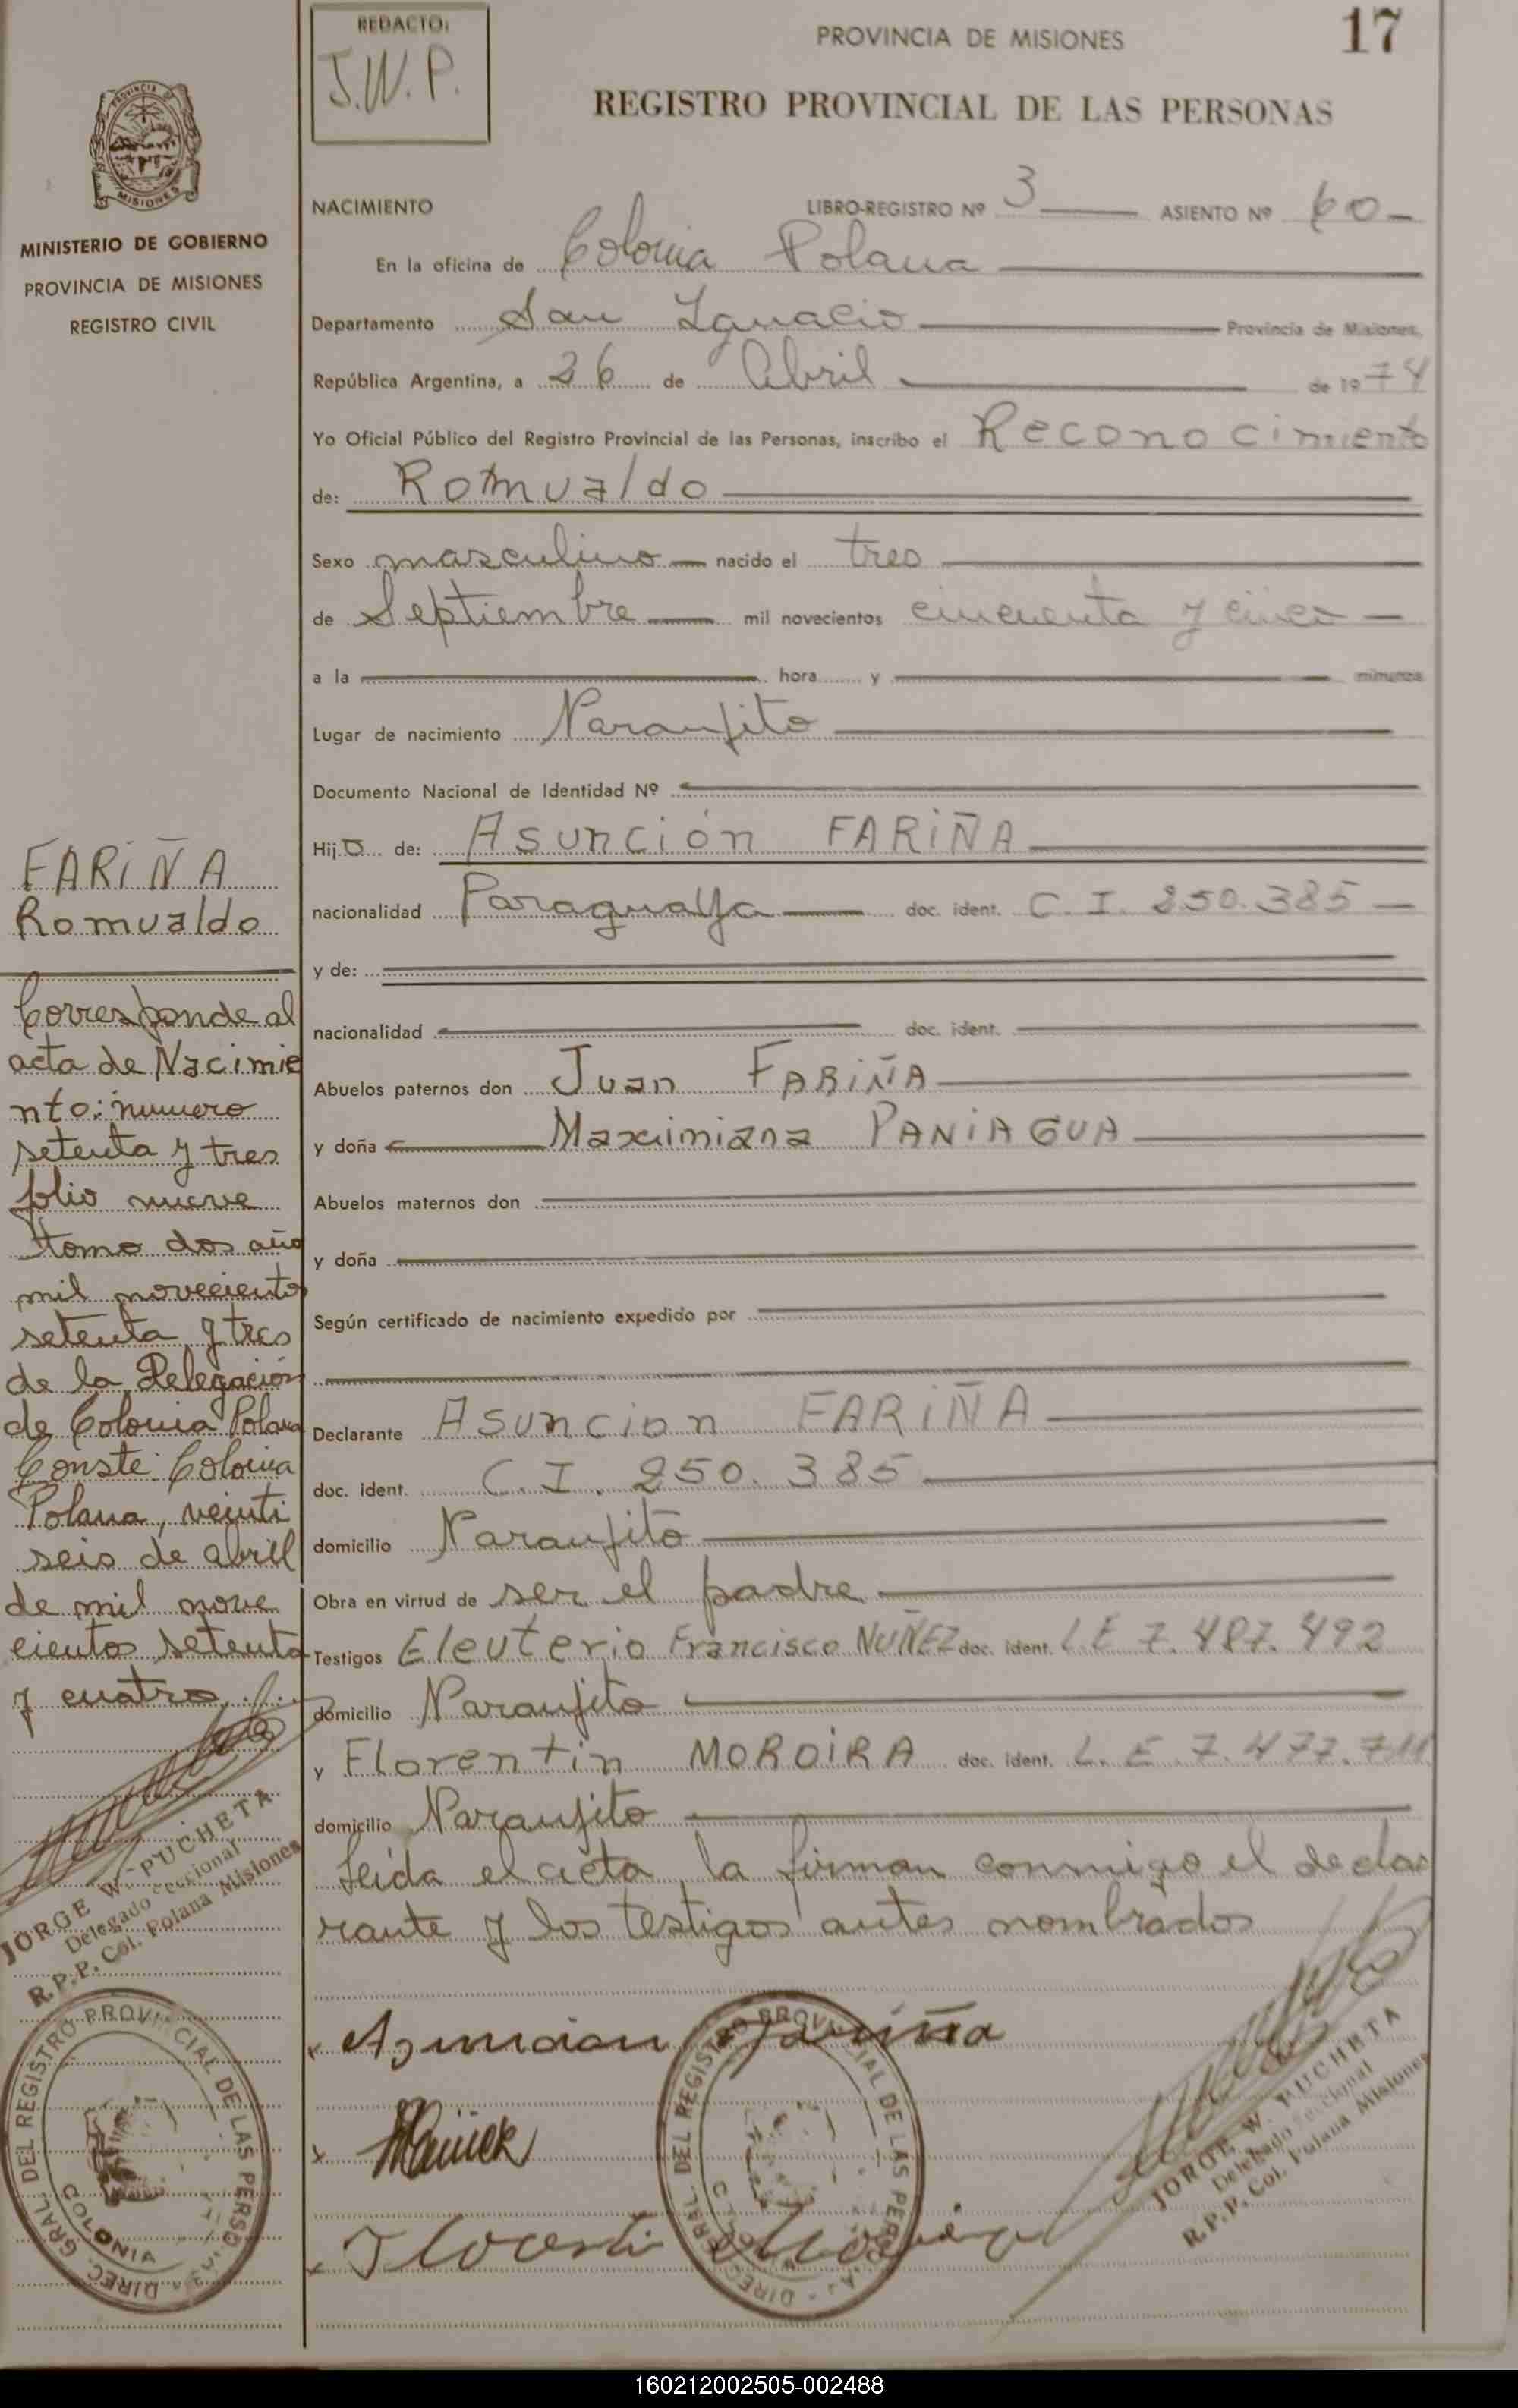 REDACTO:
J.W.P.
PROVINCIA DE MISIONES
17
REGISTRO PROVINCIAL DE LAS PERSONAS
PROVINCIA DE
MISIONES
MINISTERIO DE GOBIERNO
PROVINCIA DE MISIONES
REGISTRO CIVIL
NACIMIENTO LIBRO-REGISTRO Nº 3 ASIENTO Nº 60
En la oficina de Colonia Polana
Departamento San Ignacio Provincia de Misiones,
República Argentina, a 26 de Abril de 1974
Yo Oficial Público del Registro Provincial de las Personas, inscribo el Reconocimiento
de: Romualdo
Sexo masculino nacido el tres
de Septiembre mil novecientos cincuenta y cinco
a la hora y minutos
Lugar de nacimiento Naranjito
Documento Nacional de Identidad Nº
Hijo de: Asunción FARIÑA
nacionalidad Paraguaya doc. ident. C. I. 250.385
y de:
nacionalidad doc. ident.
Abuelos paternos don Juan FARIÑA
y doña Maximiana PANIAGUA
Abuelos maternos don
y doña
Según certificado de nacimiento expedido por
Declarante Asuncion FARIÑA
doc. ident. C. I. 250. 385
domicilio Naranjito
Obra en virtud de ser el padre
Testigos Eleuterio Francisco NUÑEZ doc. ident. L E 7. 487. 492
domicilio Naranjito
y Florentin MOROIRA doc. ident. L. E. 7. 477. 711
domicilio Naranjito
Leida el acta, la firman conmigo el decla
rante y los testigos antes nombrados
Asuncion Fariña
JORGE W. PUCHETA
Delegado Seccional
R.P.P. Col. Polana Misiones
FARIÑA
Romualdo
Corresponde al
acta de Nacimie
nto: numero
setenta y tres
folio nueve
tomo dos año
mil noveciento
setenta y tres
de la Delegación
de Colonia Polana
Conste. Colonia
Polana, veinti
seis de abril
de mil nove
cientos setenta
y cuatro
JORGE W. PUCHETA
Delegado Seccional
R.P.P. Col. Polana Misiones
DIREC. GRAL. DEL REGISTRO PROVINCIAL DE LAS PERSO
COLONIA
DIREC. GRAL. DEL REGISTRO PROVINCIAL DE LAS PERS
160212002505-002488